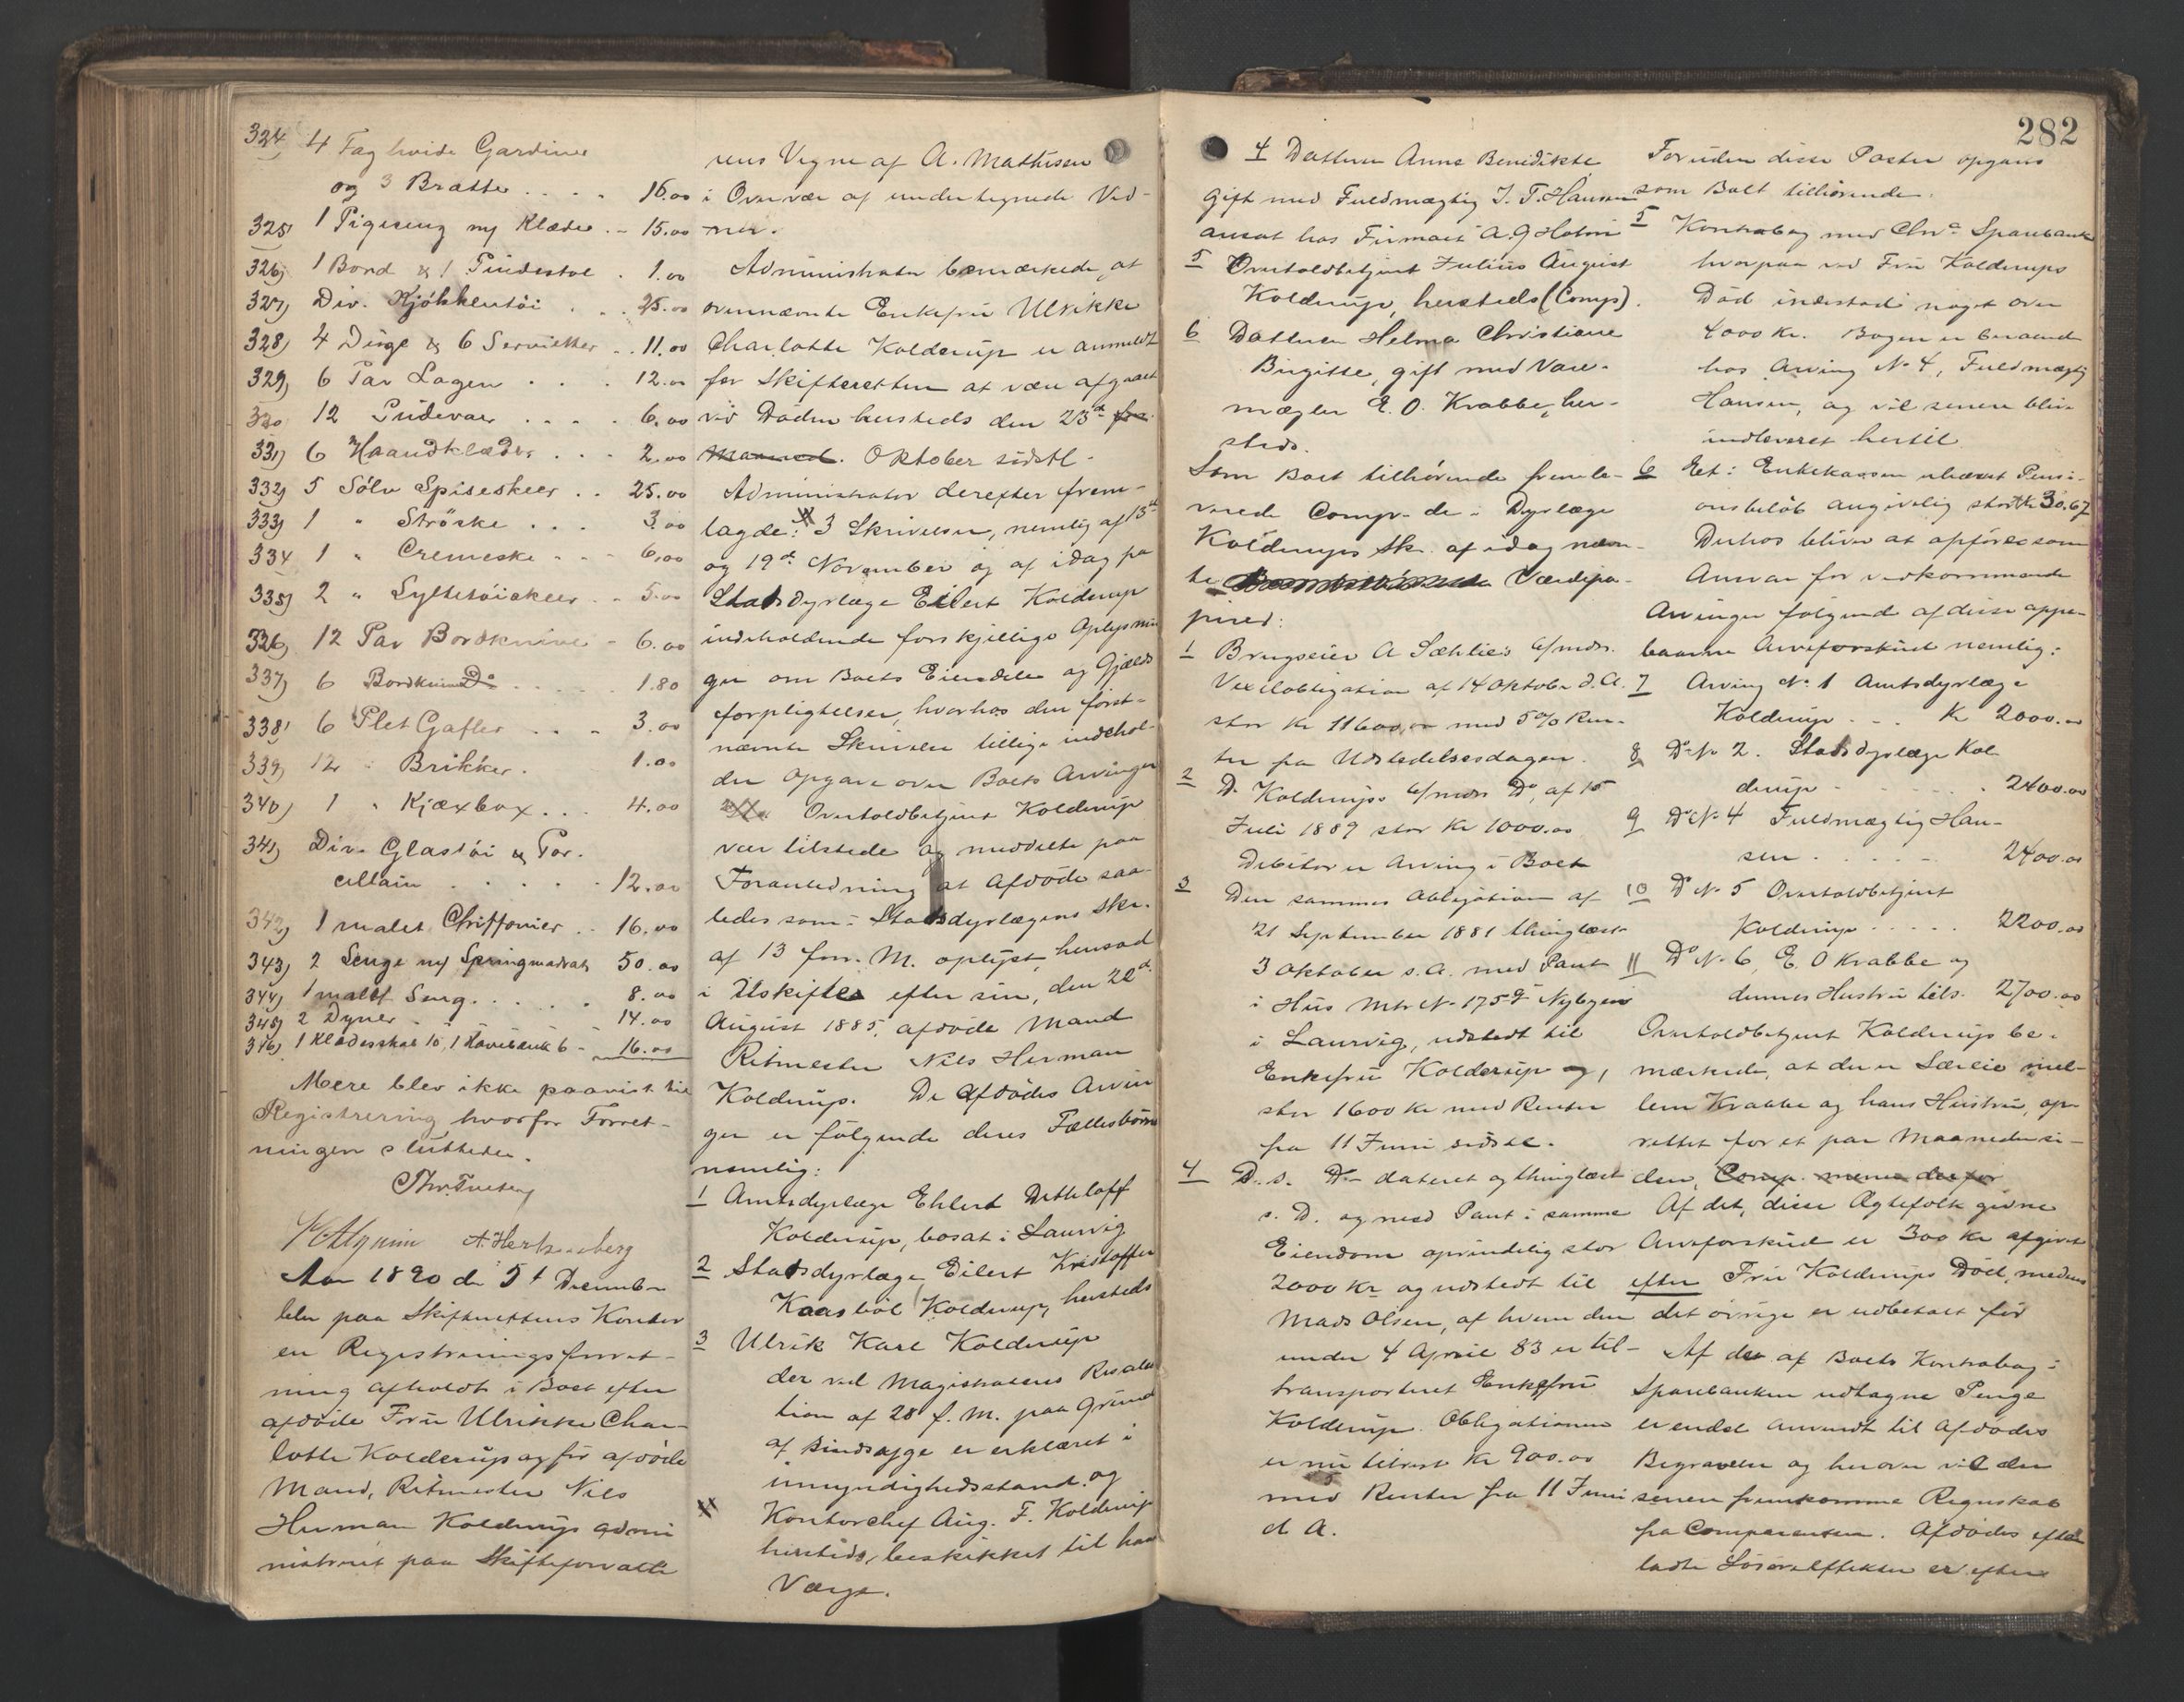 324) 4 Fag hvide Gardiner
og 3 Bratte .... 16.00
325) 1 Pigeseng m/ Klæder .- 15.00
326) 1 Bord & 1 Pindestol . 1.00
327) Div. Kjøkkentøi ... 25.00
328) 4 Duge & 6 Servietter .. 11.00
329) 6 Par Lagen .... 12.00
330 12 Pudevaer .... 6.00
331) 6 Haandklæder ... 2.00
332) 5 Sølv Spiseskeer .. 25.00
333) 1 " Strøske ... 3.00
334 1 " Cremeske - - - 6.00
335) 2 " Syltetøiskeer .. 5.00
336) 12 Par Bordknive - 6.00
337) 6 Bordknive Do ..... 1.80
338) 6 Plet Gafler ... 3.00
339) 12 " Brikker. 1.00
340) 1 " Kjæxbox ... 4.00
341) Div. Glastøi & Por-
cellain ..... 12.00
342) 1 malet Chiffonier .. 16.00
343) 2 Senge m/ Springmadrats 50.00
344) 1 malet Seng ..... 8.00
345) 2 Dyner - - - 14.00
346) 1 Klædesskab 10, 1 Havebænk 6 - 16.00
Mere blev ikke paavist til
Registrering hvorfor Forret-
ningen sluttedes.
A. Hertzenberg
Aar 1890 den 5t December
blev paa Skifterettens Kontor
en Registreringsforret-
ning afholdt i Boet efter
afdøde Fru Ulrikke Char-
lotte Kolderup og før afdøde
Mand, Ritmester Nils
Herman Kolderup admi
nistreret paa Skifteforvalte
rens Vegne af A. Mathisen
i Overvær af undertegnede Vid-
ner.
Administrator bemærkede, at
ovennævnte Enkefru Ulrikke
Charlotte Kolderup er anmeldt
for Skifteretten at være afgaaet
ved Døden hersteds den 23d for.
Maaned. Oktober sidstl.
Administrator derefter frem-
lagde: 3 Skrivelser, nemlig af 13de
og 19de November og af idag fra
Stadsdyrlæge Eilert Kolderup
indeholdende forskjellige Oplysnin
ger om Boets Eiendele og Gjælds
forpligtelser, hvorhos den først-
nævnte Skrivelse tillige indehol-
der Opgave over Boets Arvinger
Overtoldbetjent Kolderup
var tilstede og meddelte paa
Foranledning at Afdøde saa-
ledes som i Stadsdyrlægens Skr.
af 13 forr. M. oplyst, hensad
i Uskiftet efter sin, den 22d
August 1885, afdøde Mand
Ritmester Nils Herman
Kolderup. De Afdødes Arvin
ger er følgende deres Fællesbørn
nemlig:
1 Amtsdyrlæge Ehlert Dethloff
Kolderup, bosat i Laurvig
2 Stadsdyrlæge Eilert Kristoffer
Kaasbøl Kolderup, hersteds
3 Ulrik Karl Kolderup
der ved Magistratens Resolu
tion af 28 f. M. paa Grund
af Sindssyge er erklæret i
umyndighedsstand. og
Kontorchef Aug. F. Kolderup
hersteds, beskikket til hans
Værge.
282
4 Datteren Anna Benedikte
gift med Fuldmægtig J. T. Hansen
ansat hos Firmaet A. G Holm
5 Overtoldbetjent Julius August
Kolderup, hersteds (Comp).
6 Datteren Helma Christiane
Birgitte, gift med Vare-
mægler E. O. Krabbe, her-
steds.
Som Boet tilhørende fremle-
verede Comp. de i Dyrlæge
Kolderups Skr. af idag nævn-
te Værdipa-
pirer:
1 Brugseier A Sæhlies 6/mdrs.
Vexelobligation af 14 Oktober d. A.
stor Kr 11600,00 med 5% Ren-
ter fra Udstedelsesdagen.
2 D. Kolderups 6/mdrs Do, af 15
Juli 1889 stor Kr 1000.00
Debitor er Arving i Boet
3 Den sammes Obligation af
21 September 1881 thinglæst
3 Oktober s. A. med Pant
i Hus Mtr No 175 Nybyen
i Laurvig, udstedt til
Enkefru Kolderup og,
stor 1600 Kr med Renter
fra 11 Juni sidstl.
4 D. s. Do dateret og thinglæst
s. D. og med Pant i samme
Eiendom oprindelig stor
2000 Kr og udstedt til
Mads Olsen, af hvem den
under 4 April 83 er til-
transporteret Enkefru
Kolderup. Obligationen
er nu tilrest Kr 900.00
med Renter fra 11 Juni
d A.
Foruden disse Poster opgaves
som Boet tilhørende.
5 Kontrabog med Chra Sparebank
hvorpaa ved Fru Kolderups
Død indestod noget over
4000 Kr. Bogen er beroende
hos Arving No 4, Fuldmægtig
Hansen, og vil senere blive
indleveret hertil
6 Et i Enkekassen uhævet Pensi-
onsbeløb angivelig stort Kr 30.67
Derhos bliver at opføre som
Ansvar for vedkommende
Arvinger følgende af disse oppe-
baarne Arveforskud nemlig:
7 Arving No 1 Amtsdyrlæge
Kolderup ... Kr 2000.00
8 Do No 2. Stadsdyrlæge Kol
derup ..... 2400.00
9 Do No 4 Fuldmægtig Han-
sen ..... 2400.00
10 Do No 5 Overtoldbetjent
Kolderup ..... 2200.00
11 Do No 6, E. O Krabbe og
dennes Hustru tils. 2700.00
Overtoldbetjent Kolderup be-
mærkede, at der er Særeie mel-
lem Krabbe og hans Hustru, op-
rettet for et par Maaneder si-
den, Comp. mener derfor
Af det, disse Ægtefolk givne
Arveforskud er 300 Kr afgivet
efter Fru Kolderups Død, medens
det øvrige er udbetalt før
Af de af Boets Kontrabog i
Sparebanken udtagne Penge
er endel anvendt til Afdødes
Begravelse og herover vil der
senere fremkomme Regnskab
fra Comparenten. Afdødes efter
ladte Løsøreeffekter er efter